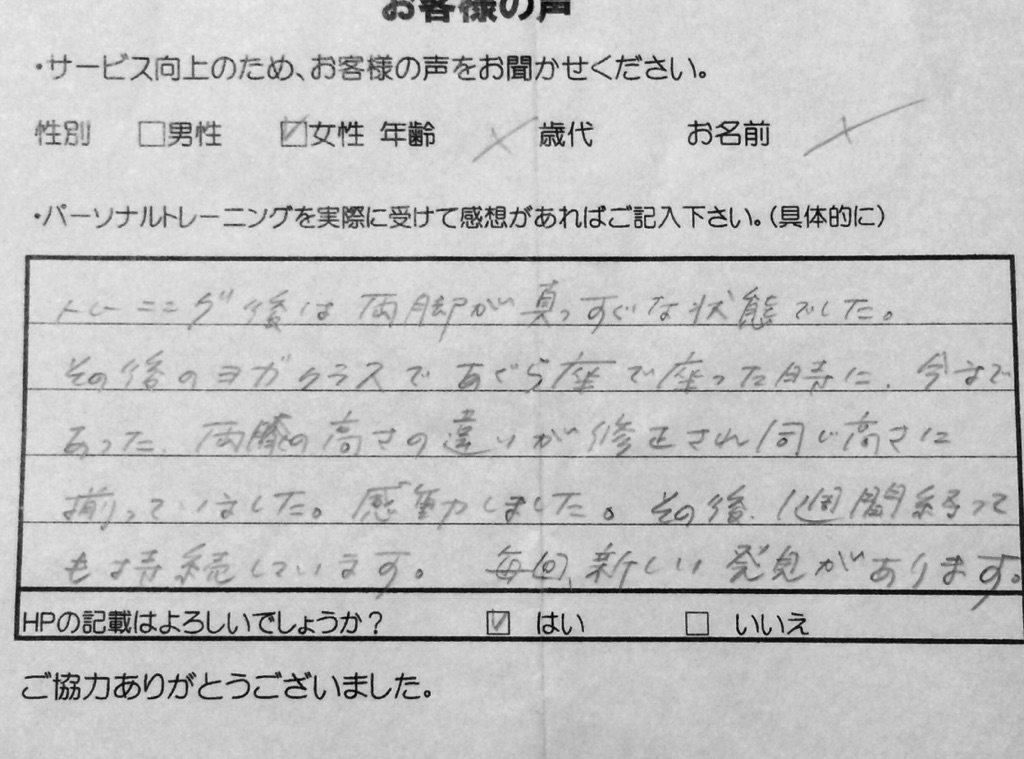 お客様の声
・サービス向上のため、お客様の声をお聞かせください。
性別 □男性 ☑女性 年齢 × 歳代 お名前 ×
・パーソナルトレーニングを実際に受けて感想があればご記入下さい。（具体的に）
トレーニング後は両脚が真っすぐな状態でした。
その後のヨガクラスであぐら座で座った時に、今まで
あった、両膝の高さの違いが修正され同じ高さに
揃っていました。感動しました。その後、1週間経って
も持続しています。毎回、新しい発見があります。
HPの記載はよろしいでしょうか？ ☑ はい □ いいえ
ご協力ありがとうございました。